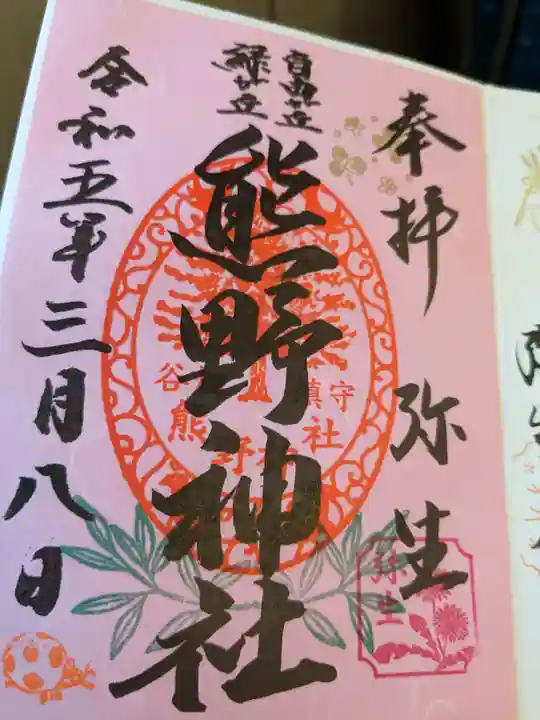 奉拝 弥生
自由が丘
緑が丘
熊野神社
令和五年三月八日
谷 鎮守
熊野神社
弥生